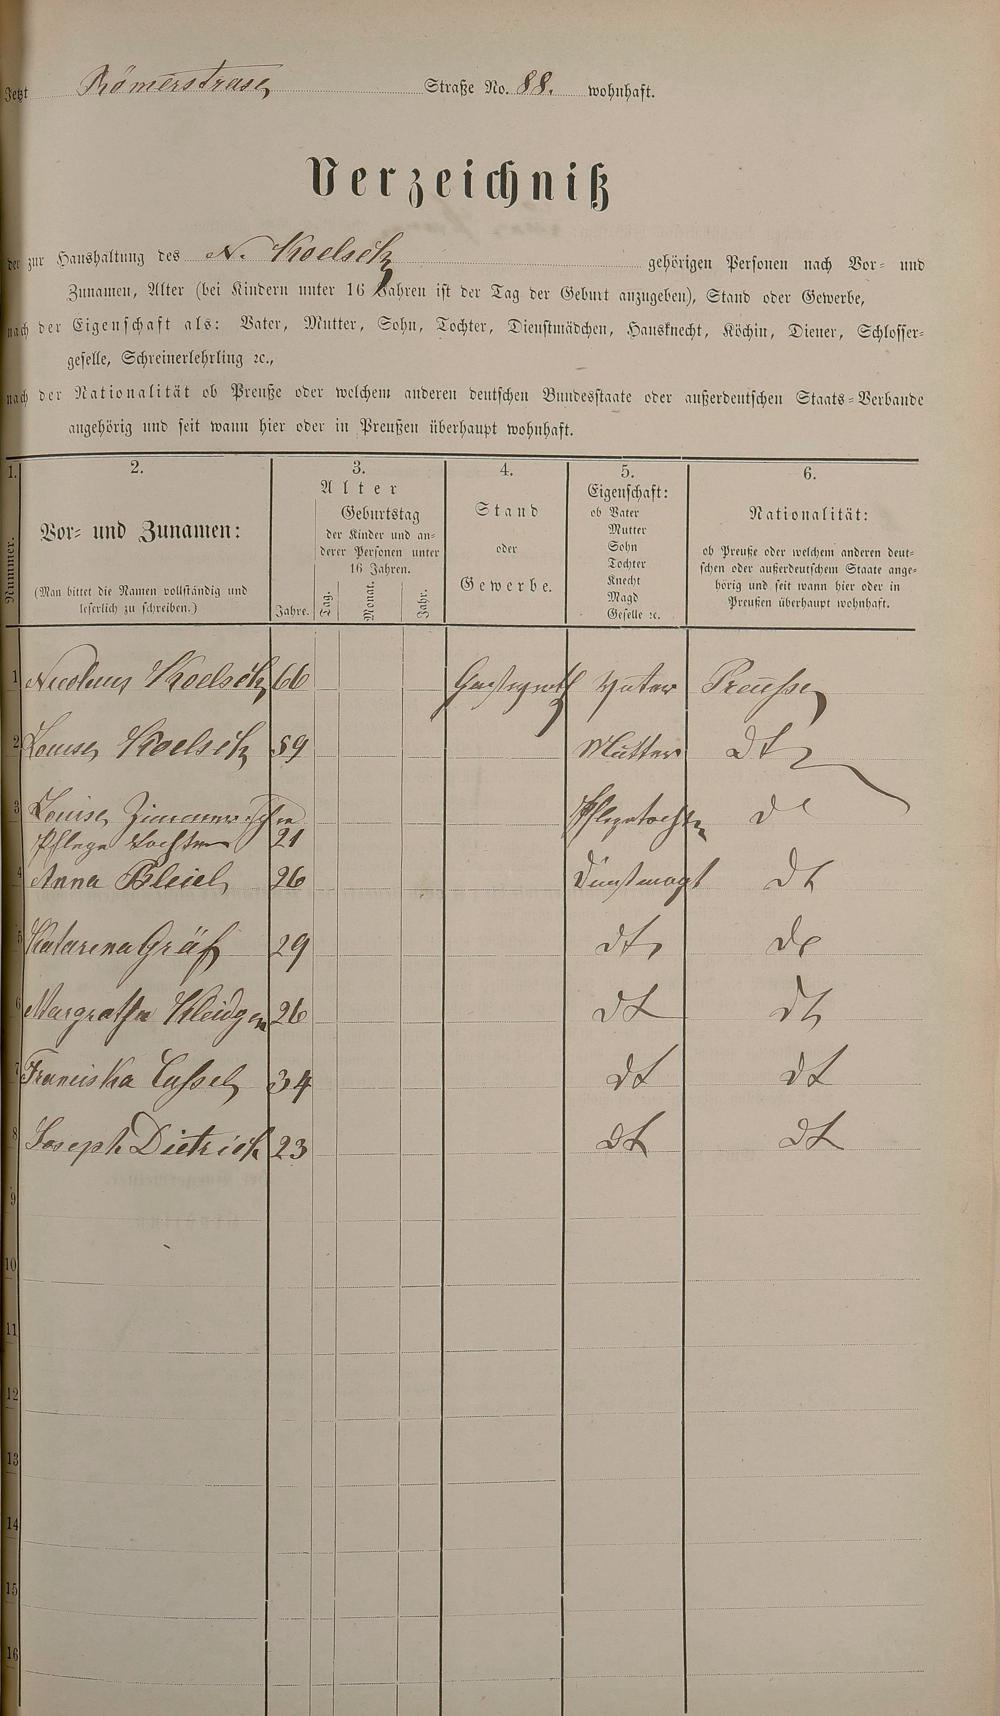 Jetzt Römerstrase Straße No. 88. wohnhaft.
Verzeichniß
der zur Haushaltung des N. Koelsch gehörigen Personen nach Vor- und
Zunamen, Alter (bei Kindern unter 16 Jahren ist der Tag der Geburt anzugeben), Stand oder Gewerbe,
nach der Eigenschaft als: Vater, Mutter, Sohn, Tochter, Dienstmädchen, Hausknecht, Köchin, Diener, Schlosser-
geselle, Schreinerlehrling ꝛc.,
nach der Nationalität ob Preuße oder welchem anderen deutschen Bundesstaate oder außerdeutschen Staats-Verbande
angehörig und seit wann hier oder in Preußen überhaupt wohnhaft.
1. 2. 3. 4. 5. 6.
Nummer.
Vor- und Zunamen:
(Man bittet die Namen vollständig und
leserlich zu schreiben.)
Alter
Jahre.
Geburtstag
der Kinder und an-
derer Personen unter
16 Jahren.
Tag. Monat. Jahr.
Stand
oder
Gewerbe.
Eigenschaft:
ob Vater
Mutter
Sohn
Tochter
Knecht
Magd
Geselle ꝛc.
Nationalität:
ob Preuße oder welchem anderen deut-
schen oder außerdeutschem Staate ange-
hörig und seit wann hier oder in
Preußen überhaupt wohnhaft.
1 Nicolaus Koelsch 66 Gastwirth Vater Preusse
2 Louise Koelsch 59 Mutter dt
3 Louise Pflegetochter
Pflege tochter 21
4 Anna Bleiel 26 Dienstmagt dt
5 Katarena Gräf 29 dt
6 Margratha Kleidgen 26 dt dt
7 Franciska Cassel 34 dt dt
8 Joseph Dietrich 23 dt dt
9
10
11
12
13
14
15
16